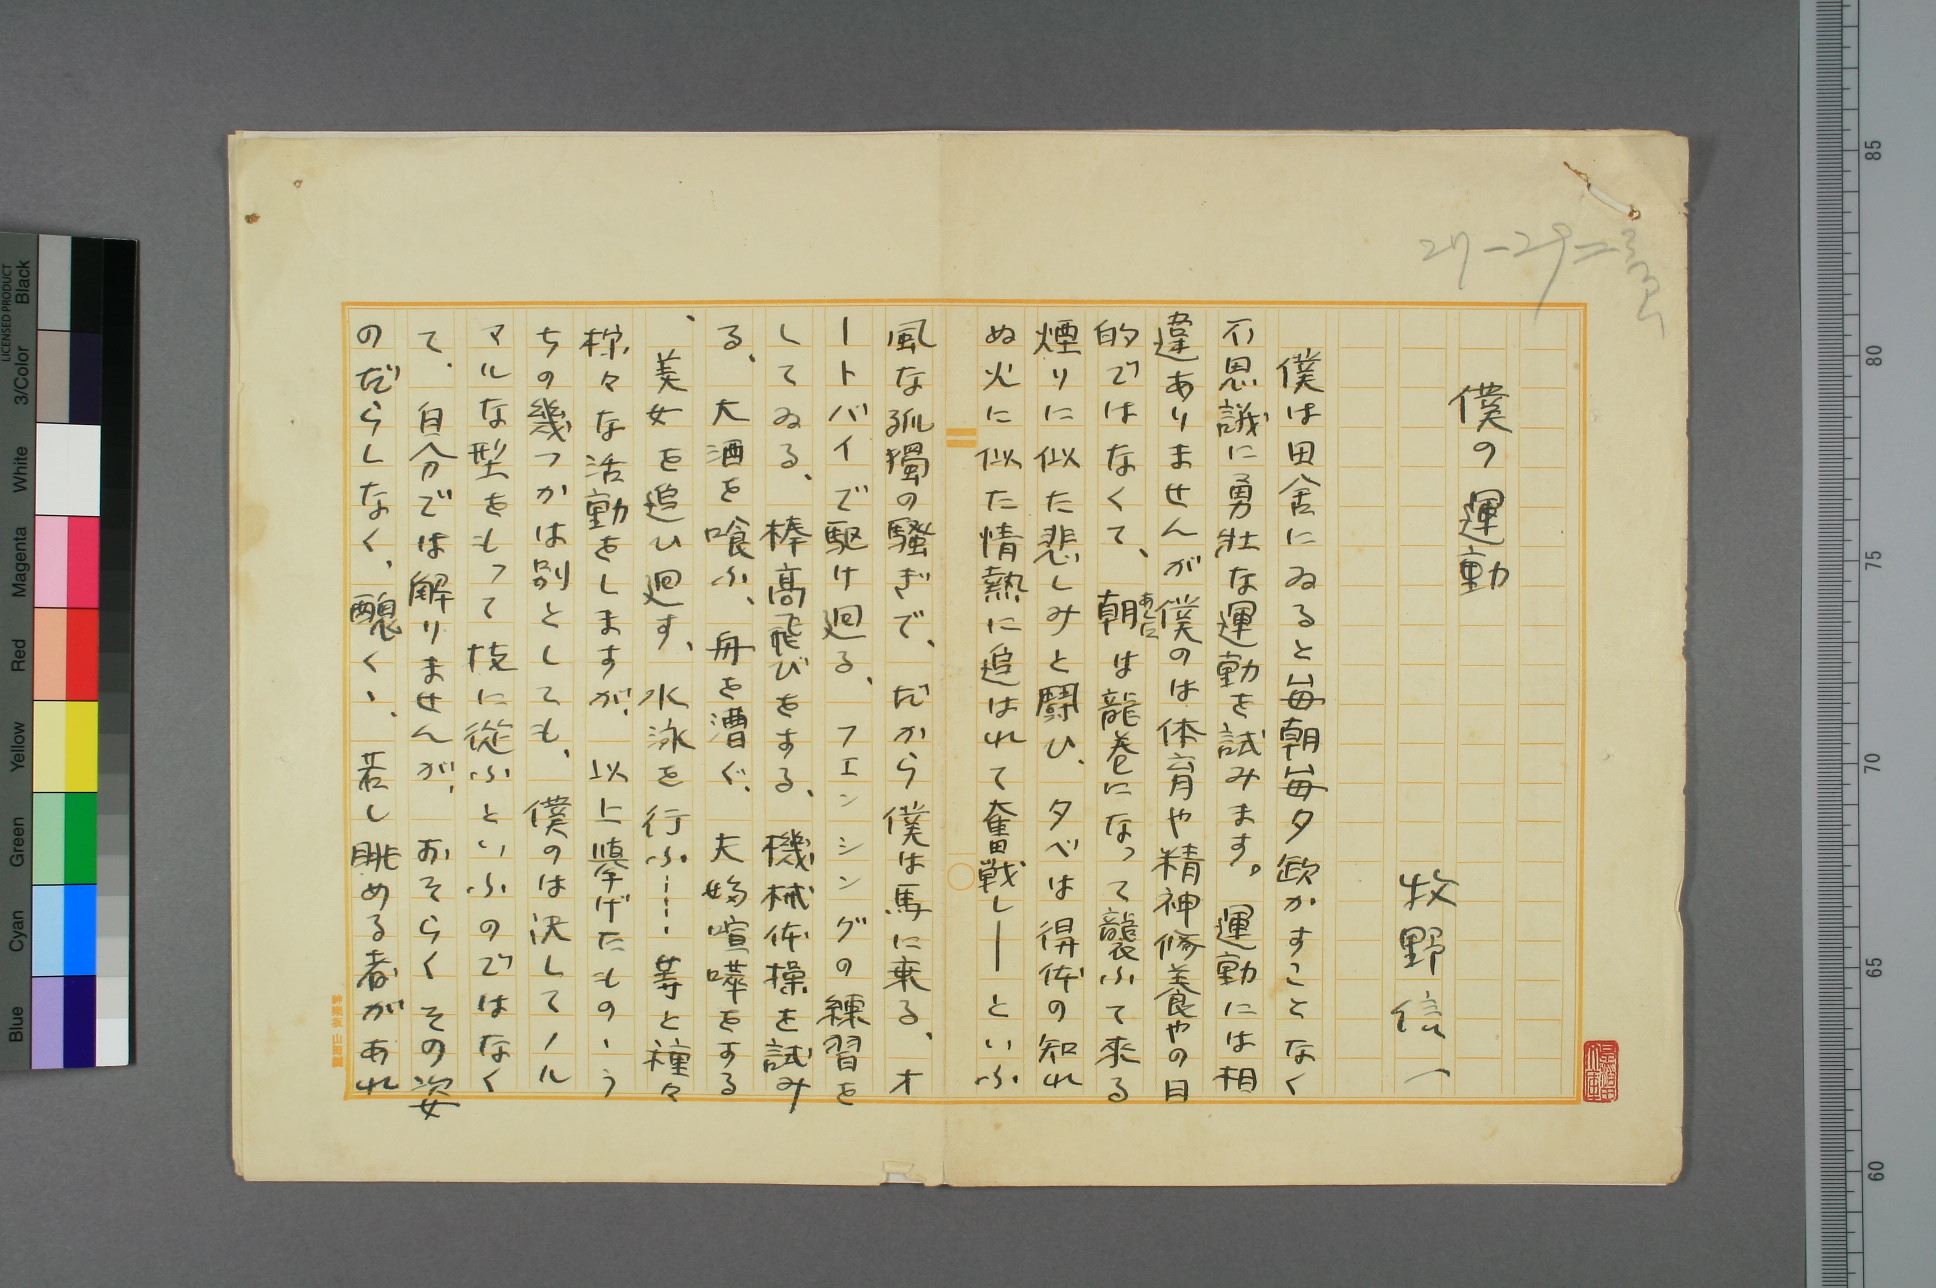 僕の運動
牧野信一
僕は田舎にゐると毎朝毎夕欧かすことなく
不思議に勇壮な運動を試みます。運動には相
違ありませんが僕のは体育や精神修養やの目
的ではなくて、朝は龍巻になつて襲ふて來る
あした
煙りに似た悲しみと闘ひ、夕べは得体の知れ
ぬ火に似た情熱に追はれて奮戦し――といふ
風な孤獨の騒ぎで、だから僕は馬に乗る、オ
ートバイで駆け廻る、フエンシングの練習を
してゐる、棒高飛びをする、機械体操を試み
る、大酒を喰ふ、舟を漕ぐ、夫婦喧嘩をする
、美女を追ひ廻す、水泳を行ふ……等と種々
様々な活動をしますが、以上挙げたものゝう
ちの幾つかは別としても、僕のは決してノル
マルな型をもつて技に從ふといふのではなく
て、自分では解りませんが、おそらくその姿
のだらしなく、醜くゝ、若し眺める者があれ
27-29=
神楽坂 山田製
Black
3/Color
White
Magenta
Red
Yellow
Green
Cyan
Blue
LICENSED PRODUCT
85
80
75
70
65
60